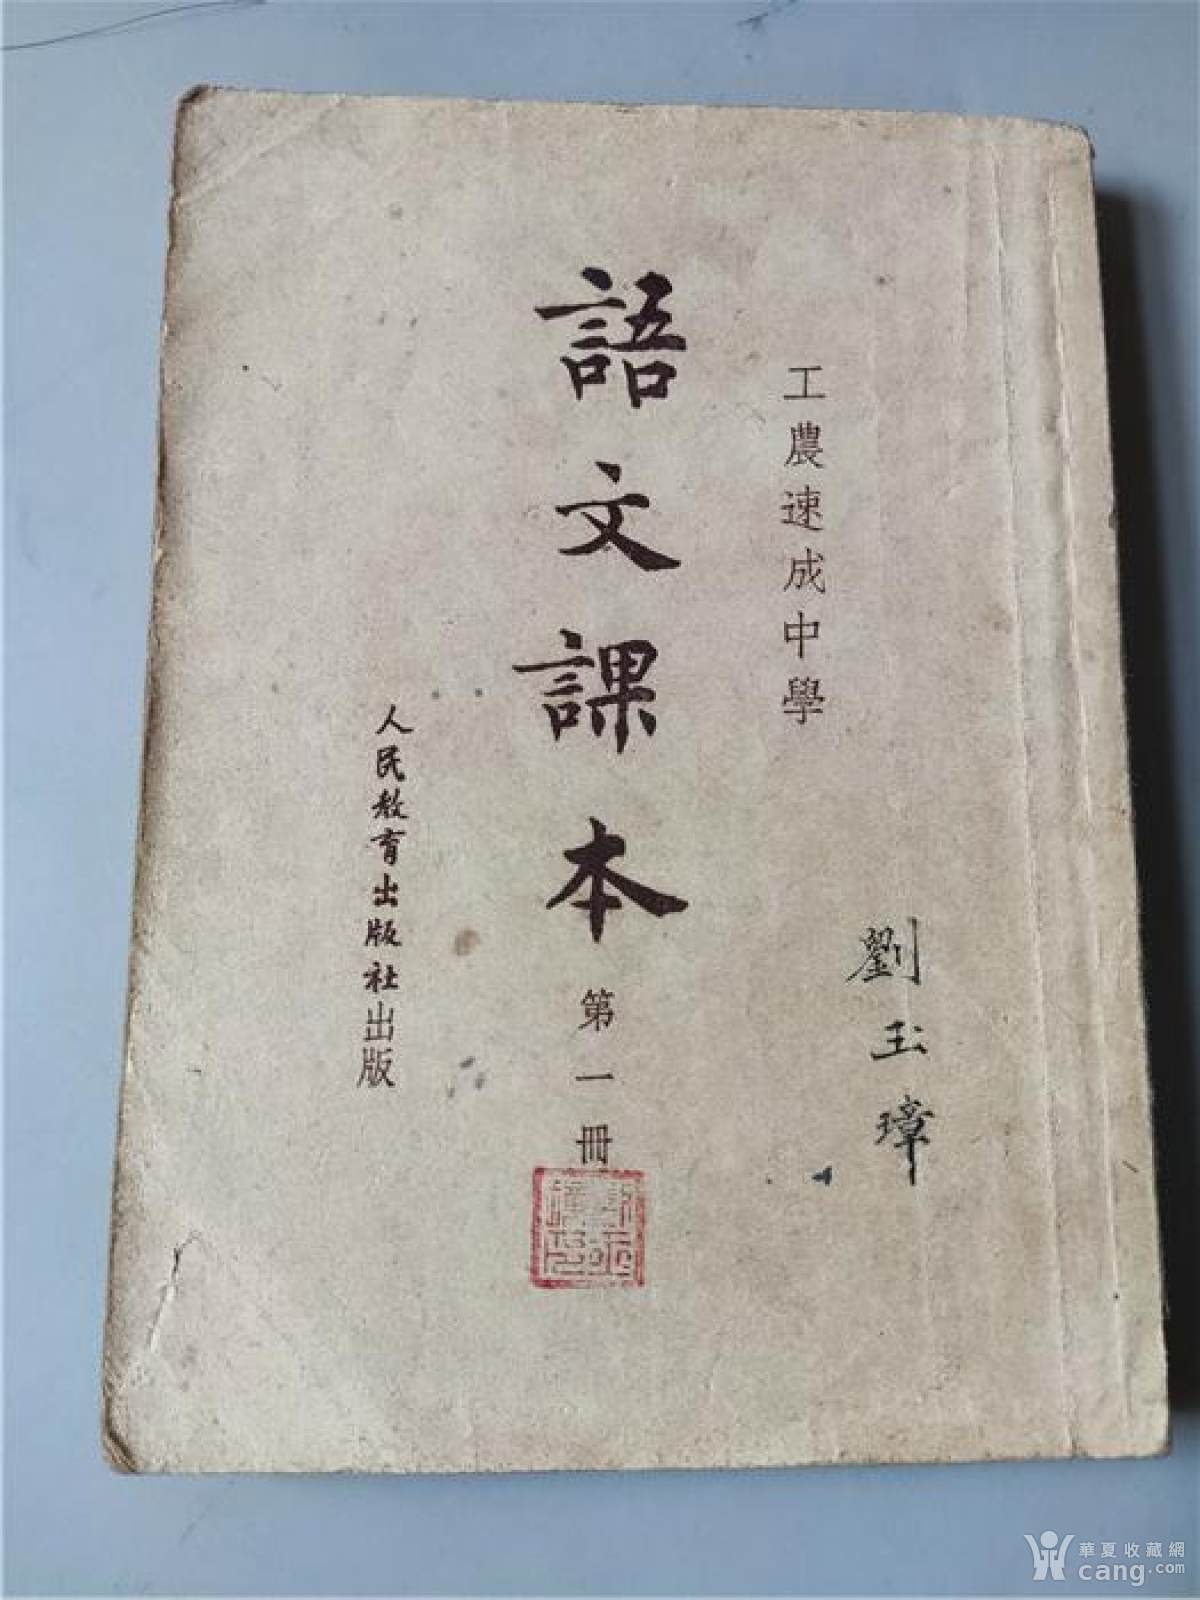 工農速成中學
劉玉璋
語文課本
第一冊
人民教育出版社出版
華夏收藏網
cang.com